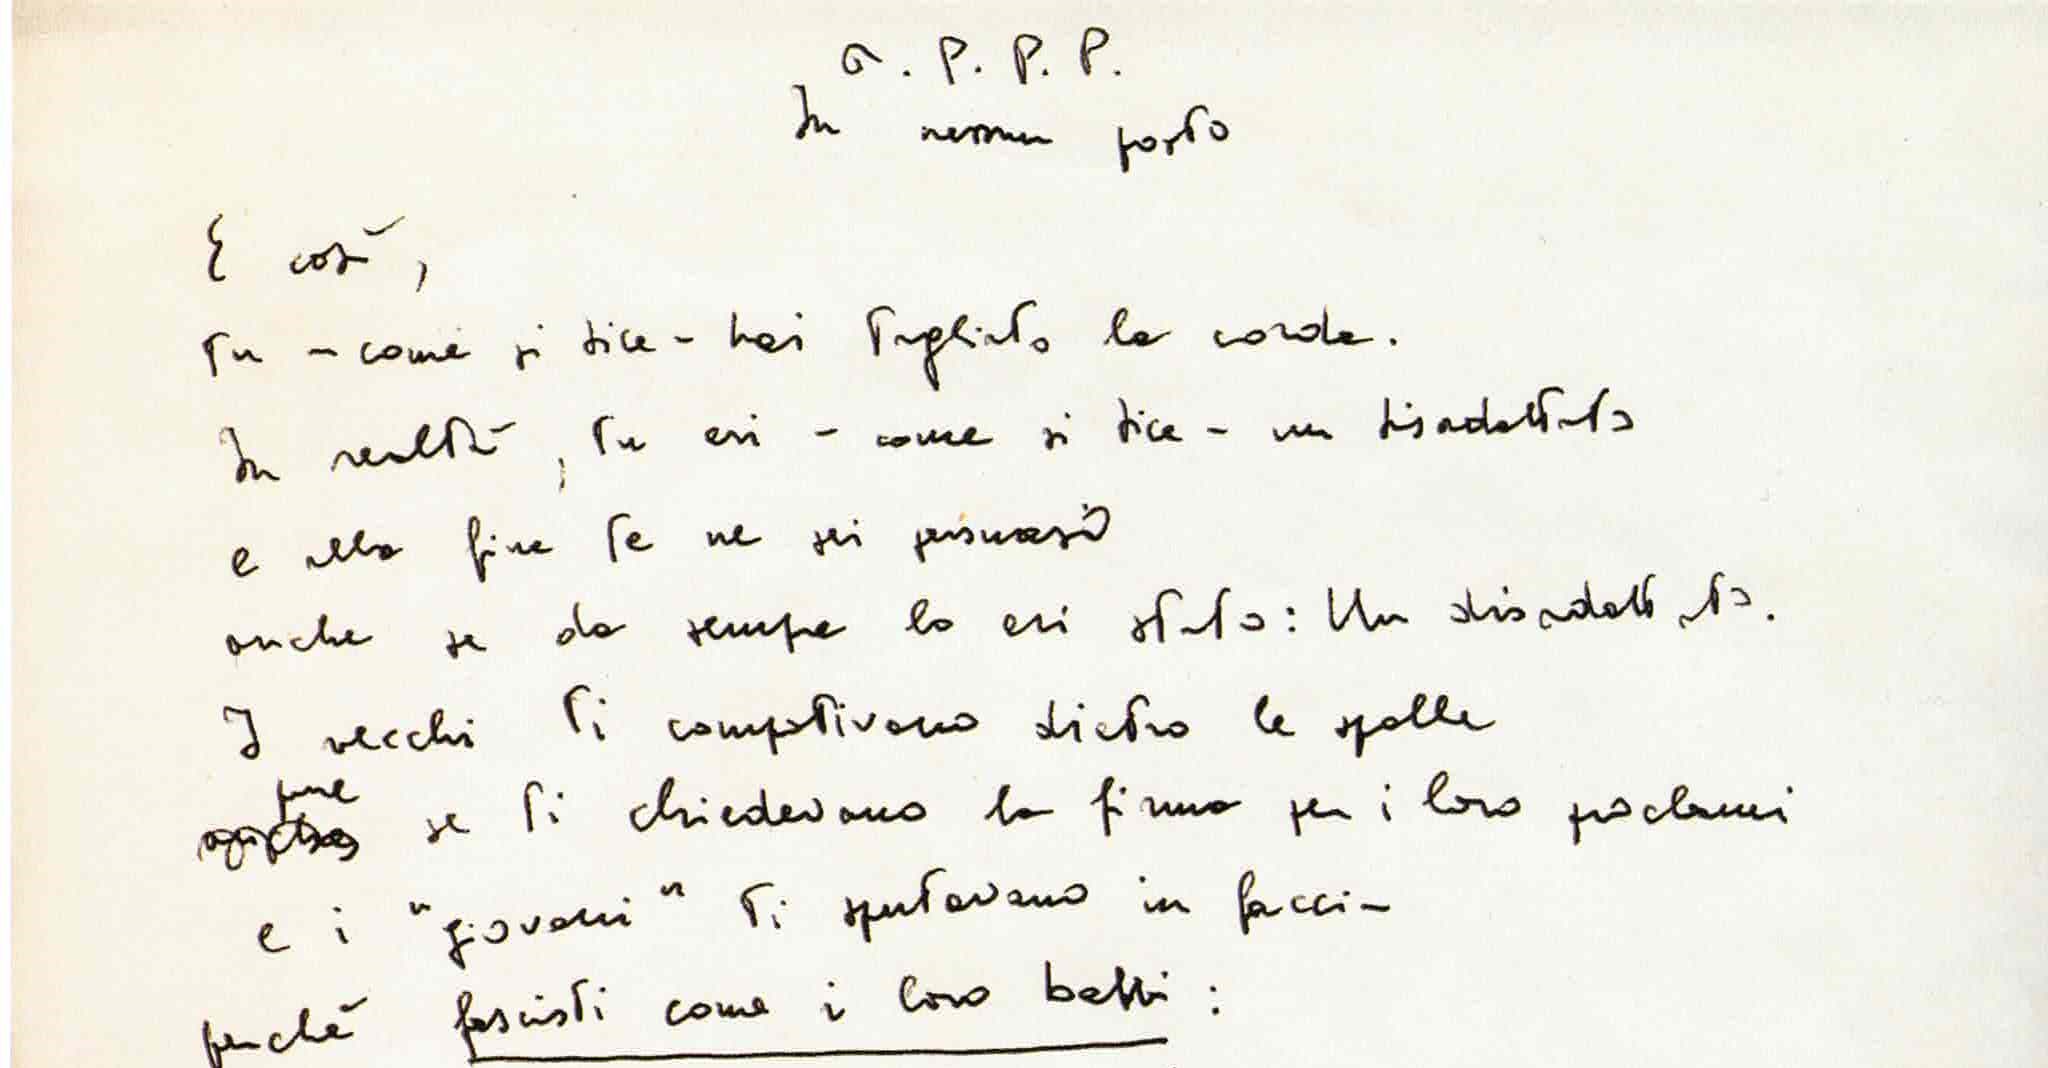 a. P. P. P.
In nessun posto
E così,
tu - come si dice - hai tagliato la corda.
In realtà, tu eri - come si dice - un disadattato
e alla fine te ne sei persuaso
anche se da sempre lo eri stato: Un disadattato.
I vecchi ti compativano dietro le spalle
pure se ti chiedevano la firma per i loro proclami
e i "giovani" ti sputavano in faccia
perchè fascisti come i loro baffi :